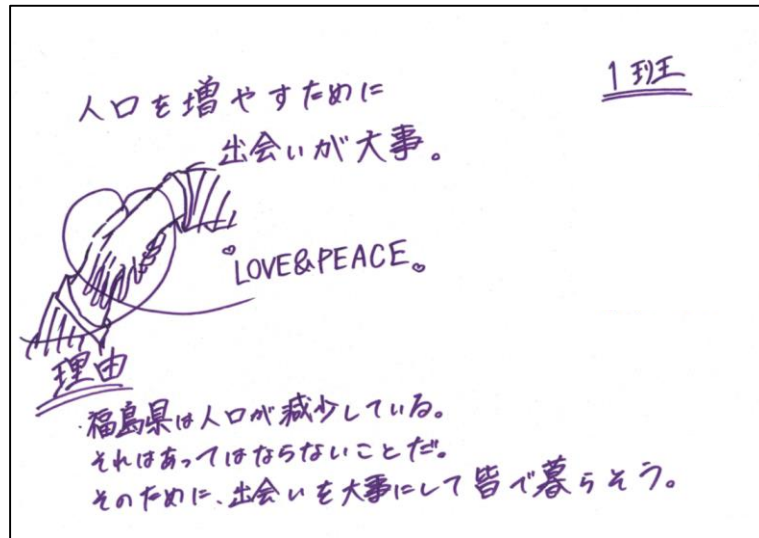 1班
人口を増やすために
出会いが大事。
LOVE&PEACE
理由
・福島県は人口が減少している。
それはあってはならないことだ。
そのために、出会いを大事にして皆で暮らそう。